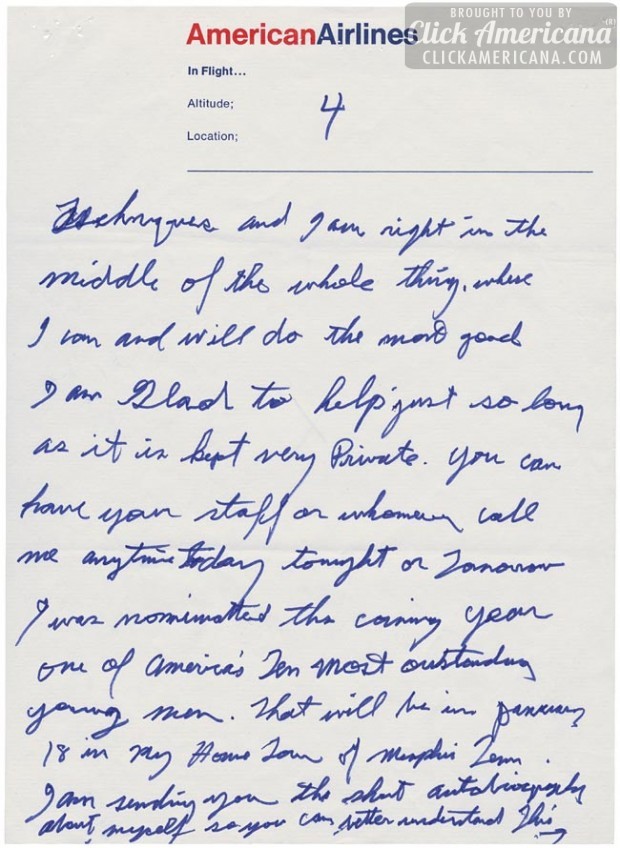 BROUGHT TO YOU BY
Click Americana (R)
CLICKAMERICANA.COM
AmericanAirlines
In Flight...
Altitude;
4
Location;
Techniques and I am right in the
middle of the whole thing, where
I can and will do the most good
I am Glad to help just so long
as it is kept very Private. you can
have your staff or whomever call
me anytime today tonight or Tomorrow
I was nominated the coming year
one of America's Ten most outstanding
young men. That will be in January
18 in my Home Town of Memphis Tenn.
I am sending you the short autobiography
about myself so you can better understand This
→